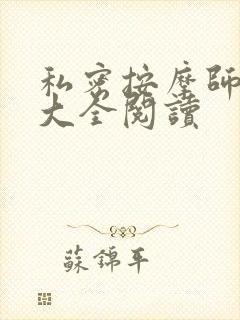 私密按摩師
大全閱讀
蘇錦年